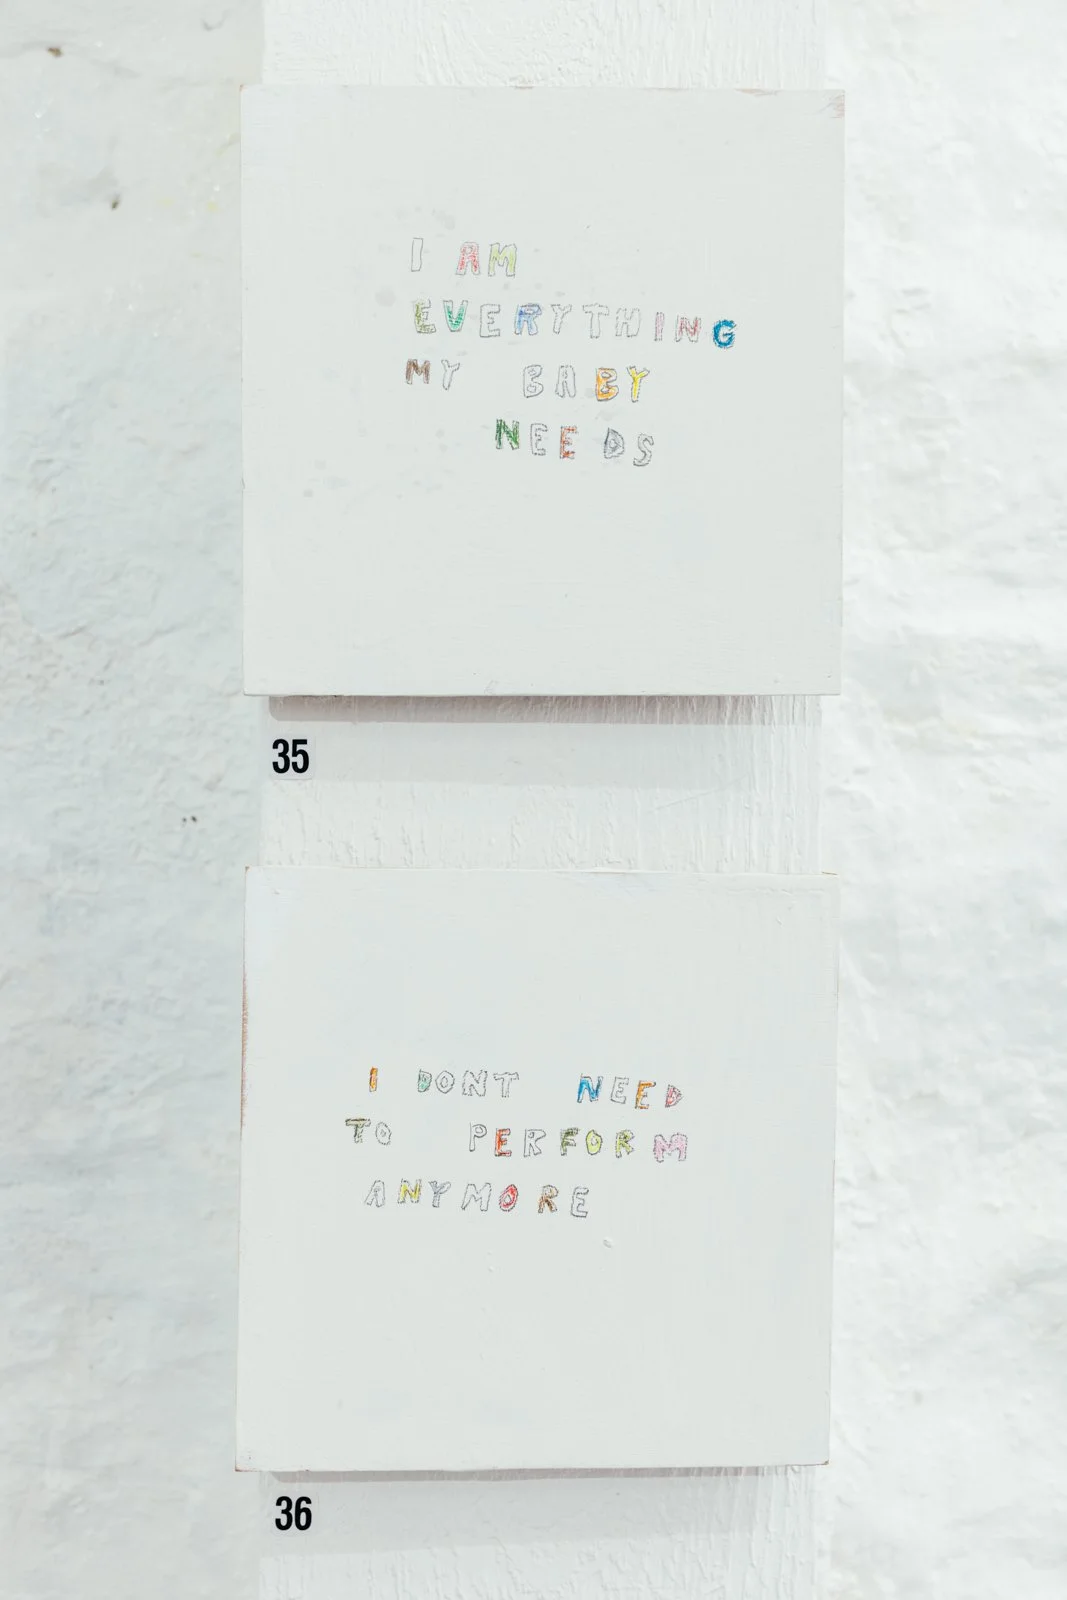 I AM
EVERYTHING
MY BABY
NEEDS
35
I DONT NEED
TO PERFORM
ANYMORE
36